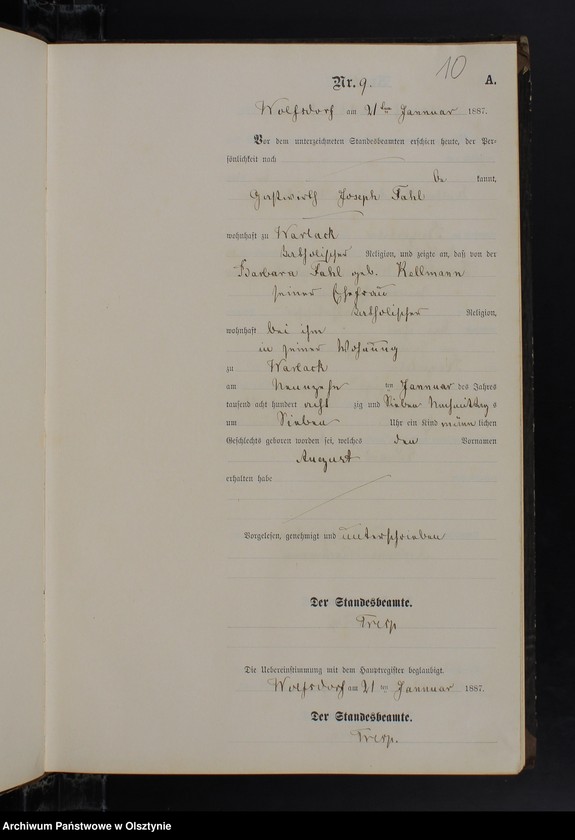 10
Nr. 9. A.
Wolfsdorf am 21ten Januar 1887.
Vor dem unterzeichneten Standesbeamten erschien heute, der Per-
sönlichkeit nach
be kannt,
Gastwirth Joseph Fahl
wohnhaft zu Warlack
katholischer Religion, und zeigte an, daß von der
Barbara Fahl geb. Kellmann
seiner Ehefrau
katholischer Religion,
wohnhaft bei ihm
in seiner Wohnung
zu Warlack
am Neunzehn ten Januar des Jahres
tausend acht hundert acht zig und Sieben Nachmittag s
um Sieben Uhr ein Kind männ lichen
Geschlechts geboren worden sei, welches den Vornamen
August
erhalten habe
Vorgelesen, genehmigt und unterschrieben
Der Standesbeamte.
Tresp
Die Uebereinstimmung mit dem Hauptregister beglaubigt.
Wolfsdorf am 21 ten Januar 1887.
Der Standesbeamte.
Tresp.
Archiwum Państwowe w Olsztynie